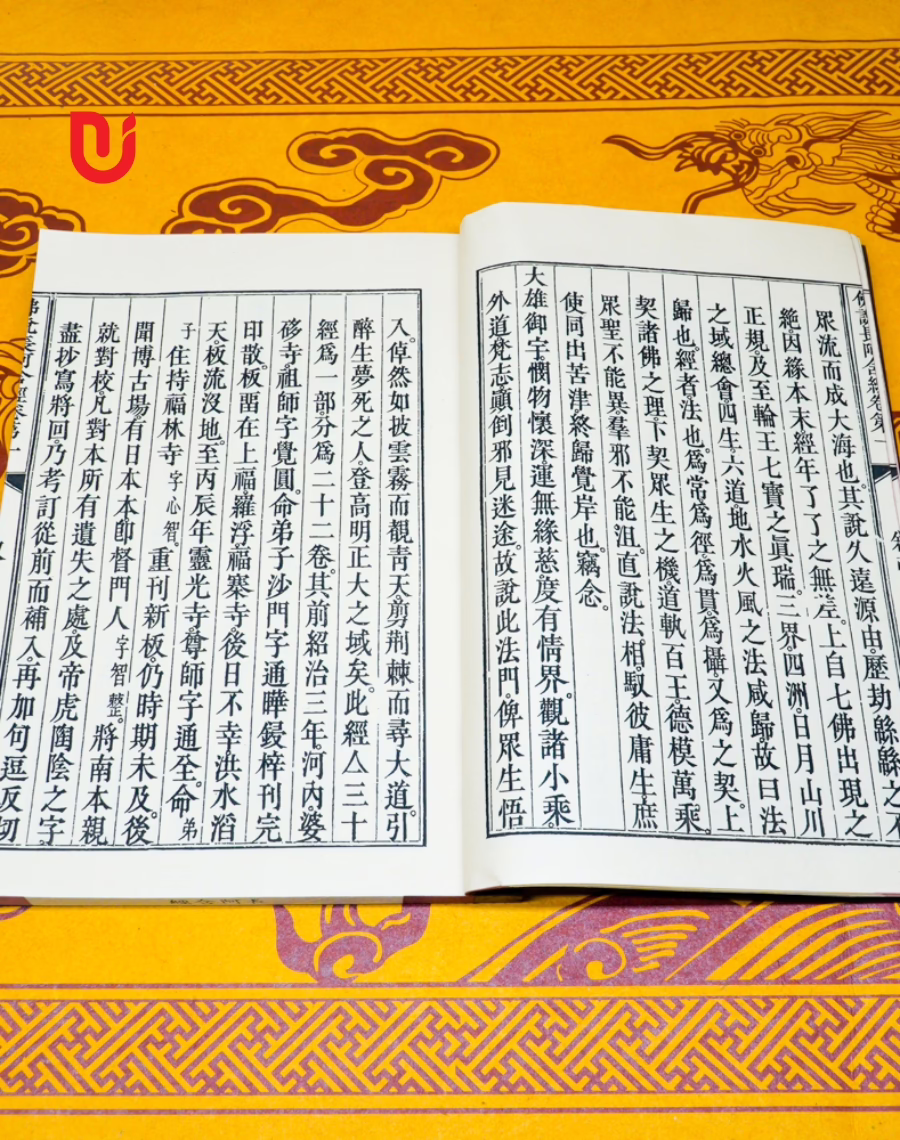 眾流而成大海也。其說久遠源由。歷劫緜緜之不
絕。因緣本末經年了了之無差。上自七佛出現之
正規。及至輪王七寶之眞瑞。三界。四洲。日月山川
之域總會四生。六道。地水火風之法咸歸。故曰法
歸也。經者法也。爲常爲徑。爲貫。爲攝。又爲之契。上
契諸佛之理。下契眾生之機。道軌百王。德模萬乘。
眾聖不能異。羣邪不能沮。直說法相。馭彼庸生庶
使同出苦津終歸覺岸也。竊念。
大雄御宇。憫物懷深。運無緣慈。度有情界。觀諸小乘。
外道梵志。顚倒邪見迷途。故說此法門。俾眾生悟
入。倬然如披雲霧而覩靑天。剪荆棘而尋大道。引
醉生夢死之人。登高明正大之域矣。此經亼三十
經爲一部。分爲二十二卷。其前紹治三年。河內。婆
寺。祖師字覺圓。命弟子沙門字通曄鋟梓刊完
印散。板畱在上福。羅浮。福寨寺。後日不幸洪水滔
天。板流沒地。至丙辰年靈光寺。尊師字通全。命弟
子住持福林寺字心智。重刊新板。仍時期未及。後
聞博古場有日本本卽督門人字智整。將南本親
就對校。凡對本所有遺失之處。及帝虎陶陰之字
盡抄寫將回。乃考訂從前而補入。再加句逗反切